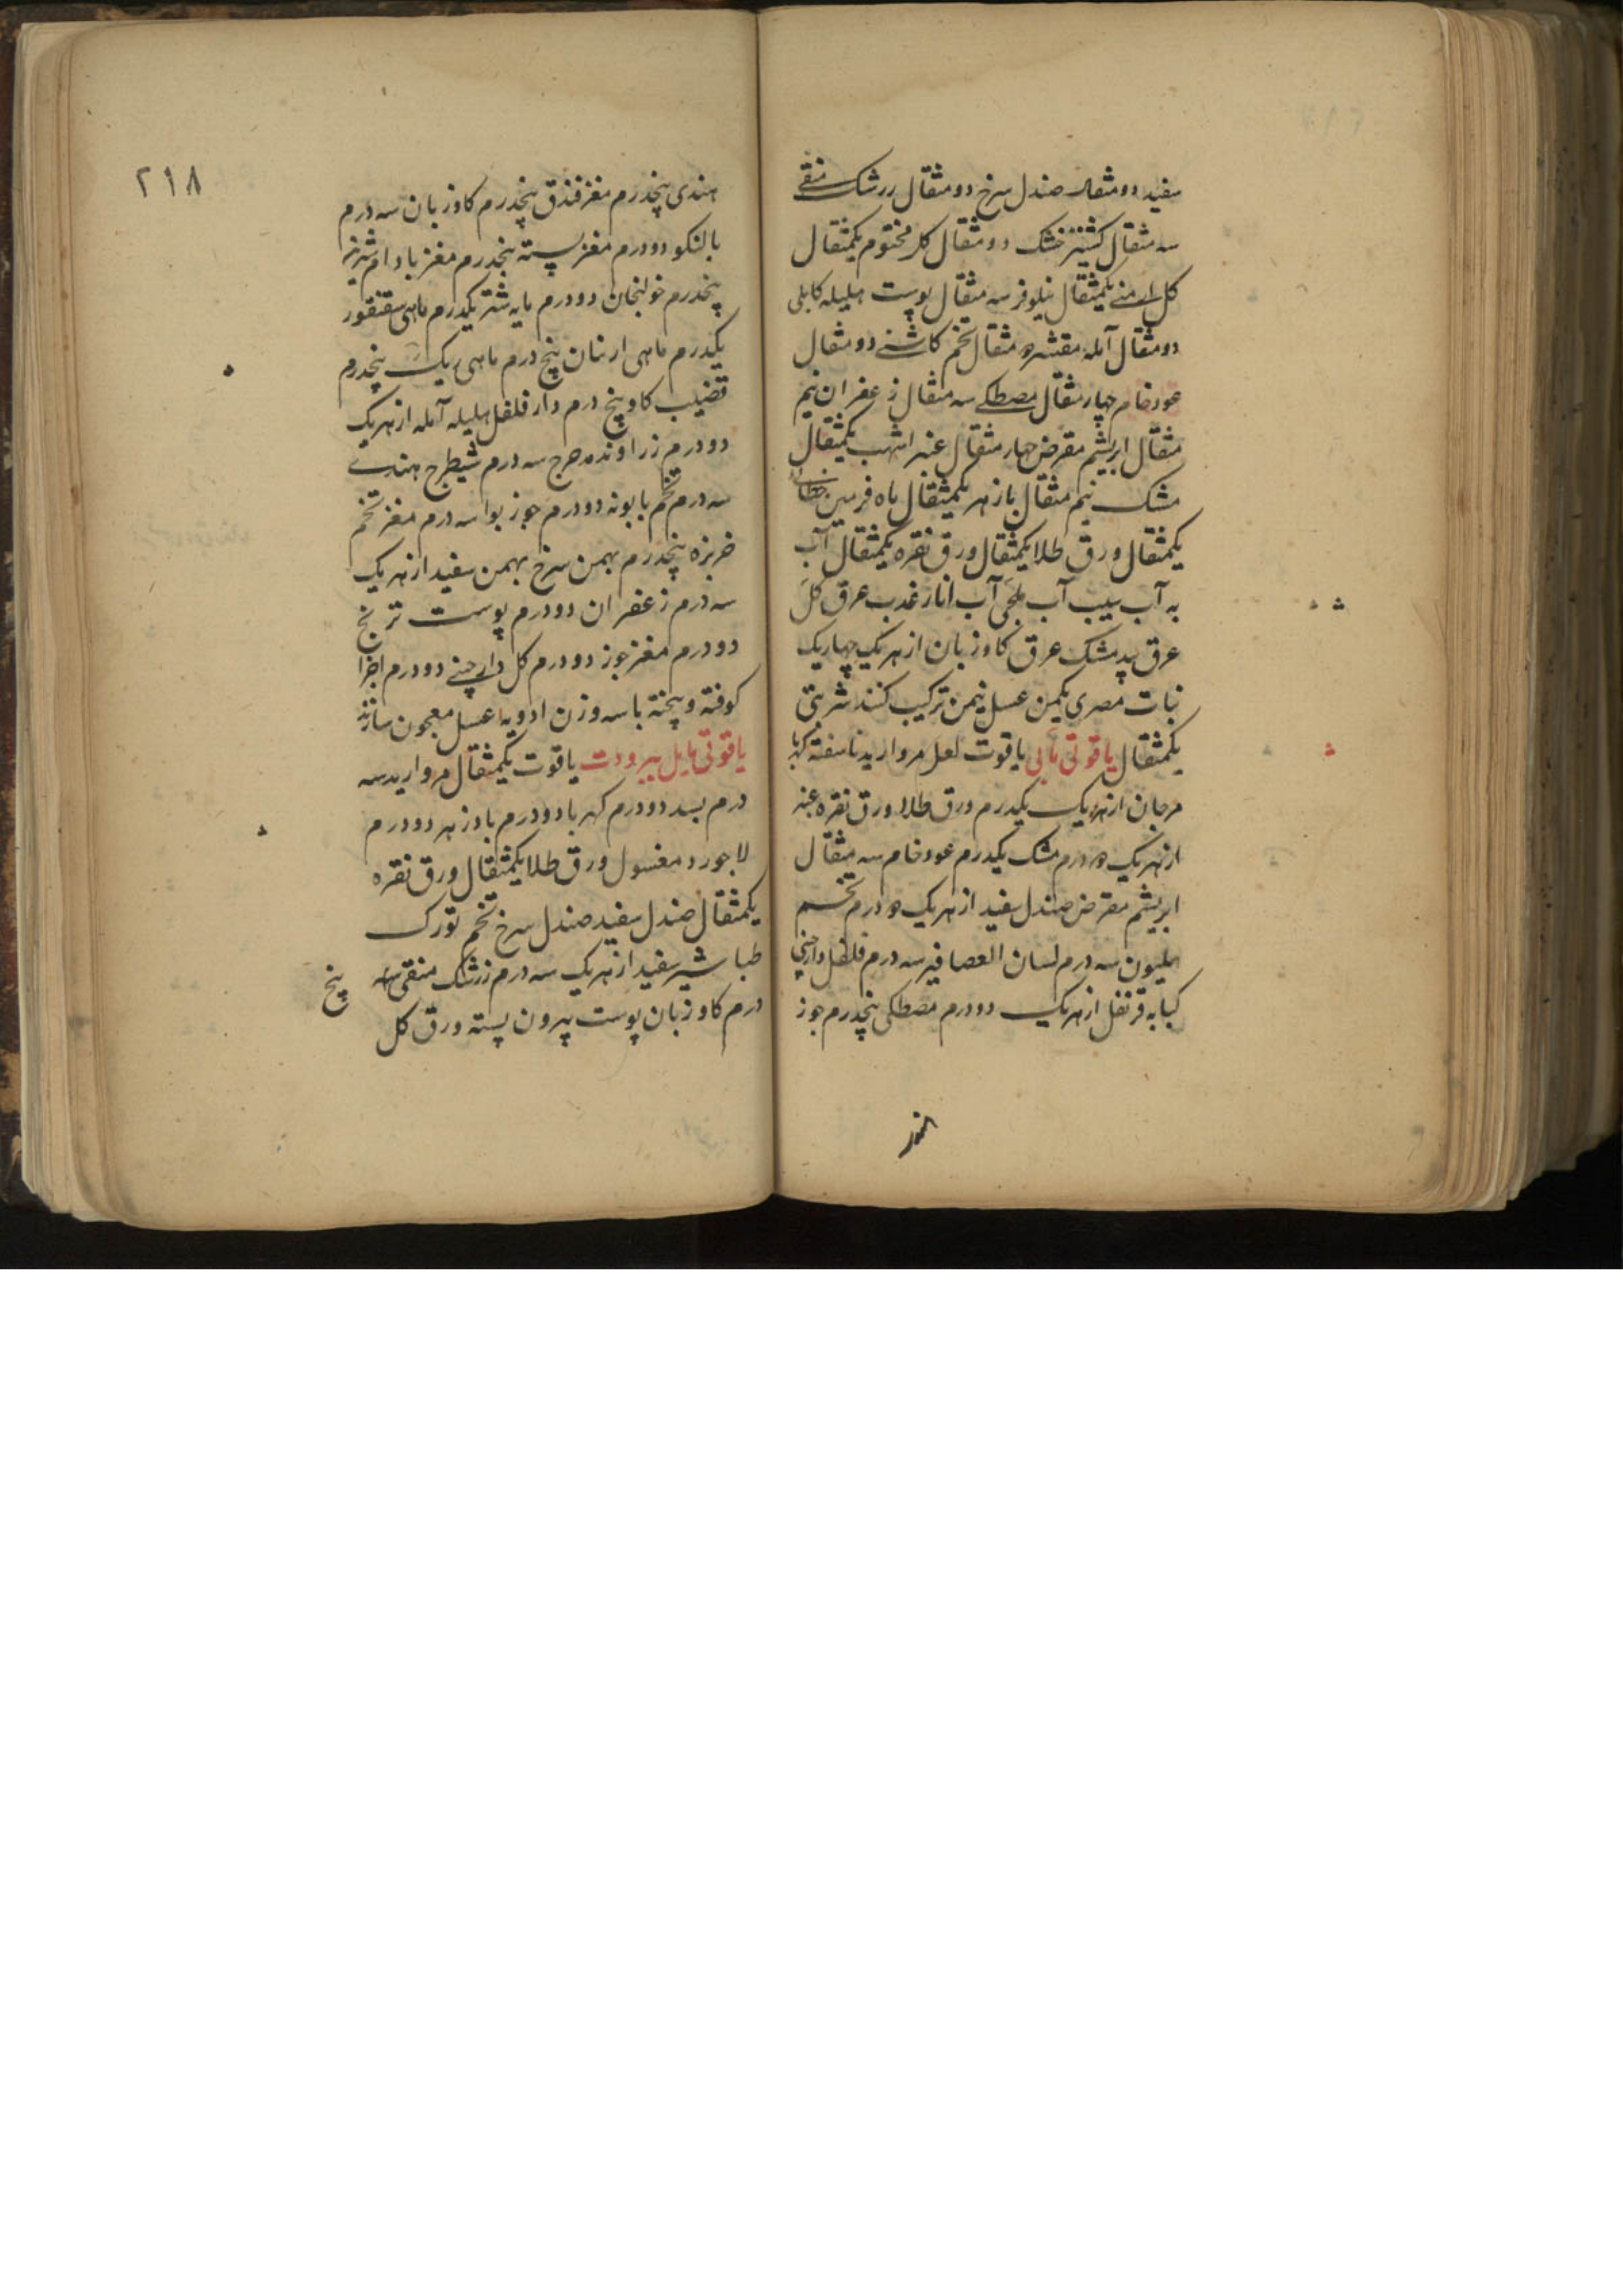 سفید دو مثقال صندل سرخ دو مثقال زرشک منقے
سه مثقال کشنیز خشک دو مثقال کل مختوم یکمثقال
کل ارمنے یکمثقال نیلوفر سه مثقال پوست هلیله کابلی
دو مثقال آمله مقشر ۵ مثقال تخم کاشنے دو مثقال
عود خام چهار مثقال مصطکے سه مثقال زعفران نیم
مثقال ابریشم مقرض چهار مثقال عنبر اشهب یکمثقال
مشک نیم مثقال بازهر یکمثقال ماه فرمین خطائی
یکمثقال ورق طلا یکمثقال ورق نقره یکمثقال آب
به آب سیب آب آب انار عذب عرق کل
عرق بیدمشک عرق کاوزبان از هریک چهاریک
نبات مصری یکمن عسل نیمن ترکیب کنند شربتی
یکمثقال یاقوتی یاقوت لعل مروارید ناسفته کهربا
مرجان از هریک یکدرم ورق طلا ورق نقره عنبر
از هریک ۵ درم مشک یکدرم عود خام سه مثقال
ابریشم مقرض صندل سفید از هریک ۵ درم تخم
هلیون سه درم لسان العصافیر سه درم فلفل دارچینی
کبابه قرنفل از هریک دو درم مصطکی پنجدرم جوز
۲۱۸
هندی پنجدرم مغز فندق پنجدرم کاوزبان سه درم
بالنکو دو درم مغز پسته پنجدرم مغز بادام شیرین
پنجدرم خولنجان دو درم مایه شتر یکدرم ماهی سقنقور
یکدرم ماهی پنج درم ماهی ریک پنجدرم
قضیب کاو پنج درم دار فلفل هلیله آمله از هریک
دو درم زراوند مدحرج سه درم شیطرج هندے
سه درم تخم بابونه دو درم جوز بوا سه درم مغز تخم
خربزه پنجدرم بهمن سرخ بهمن سفید از هریک
سه درم زعفران دو درم پوست ترنج
دو درم مغز جوز دو درم کل دارچنے دو درم اجزا
کوفته و بیخته با سه وزن ادویه عسل معجون سازند
یاقوتی مایل ببرودت یاقوت یکمثقال مروارید سه
درم بسد دو درم کهربا دو درم بادزهر دو درم
لاجورد مغسول ورق طلا یکمثقال ورق نقره
یکمثقال صندل سفید صندل سرخ تخم تورک
طباشیر سفید از هریک سه درم زرشک منقی پنج
درم کاوزبان پوست بیرون پسته ورق کل